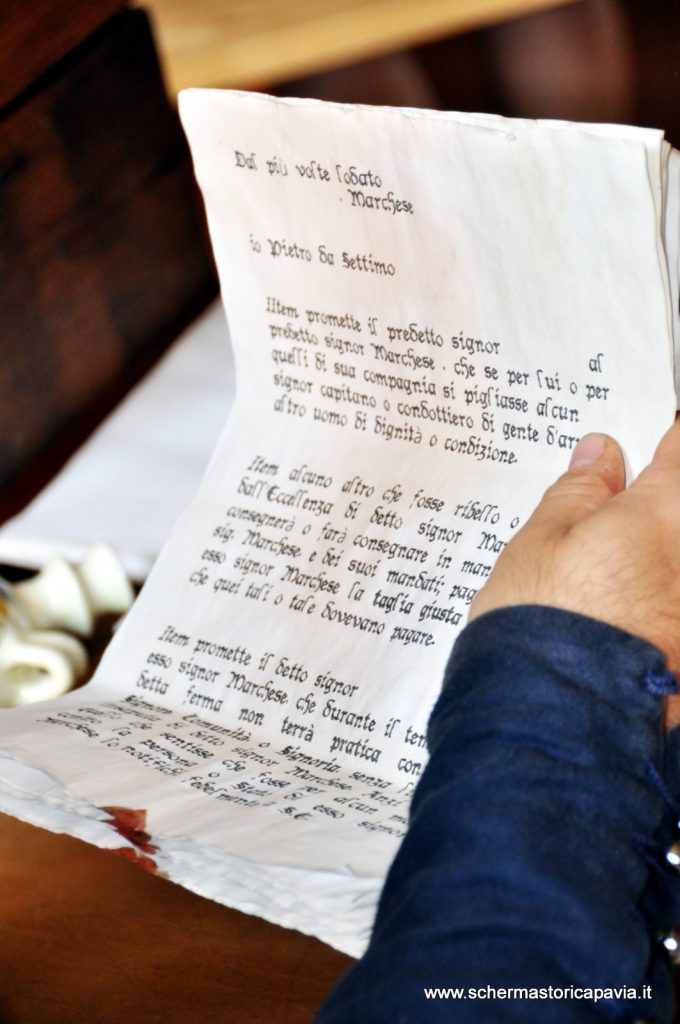 Dal più volte lodato
. Marchese
io Pietro da Settimo
IItem promette il predetto signor al
predetto signor Marchese . che se per lui o per
quelli di sua compagnia si pigliasse alcun
signor capitano o condottiero di gente d'ar
altro uomo di dignità o condizione.
Item alcuno altro che fosse ribello o
dall'Eccellenza di detto signor Mar
consegnerà o farà consegnare in man
sig. Marchese e dei suoi mandati; pag
esso signor Marchese la taglia giusta
che quei tali o tale dovevano pagare.
Item promette il detto signor
esso signor Marchese che durante il tem
detta ferma non terrà pratica con
signore Comunità o Signoria senza
di detto signor Marchese. Anzi
che sentisse che fosse per alcun
la persona o Stati di esso signor
lo notificerà fedelmente S.E
www.schermastoricapavia.it